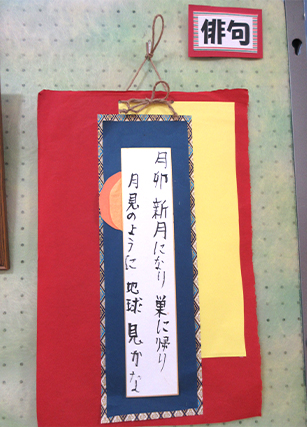 俳句
月卯 新月になり 巣に帰り
月見のように 地球 見かな